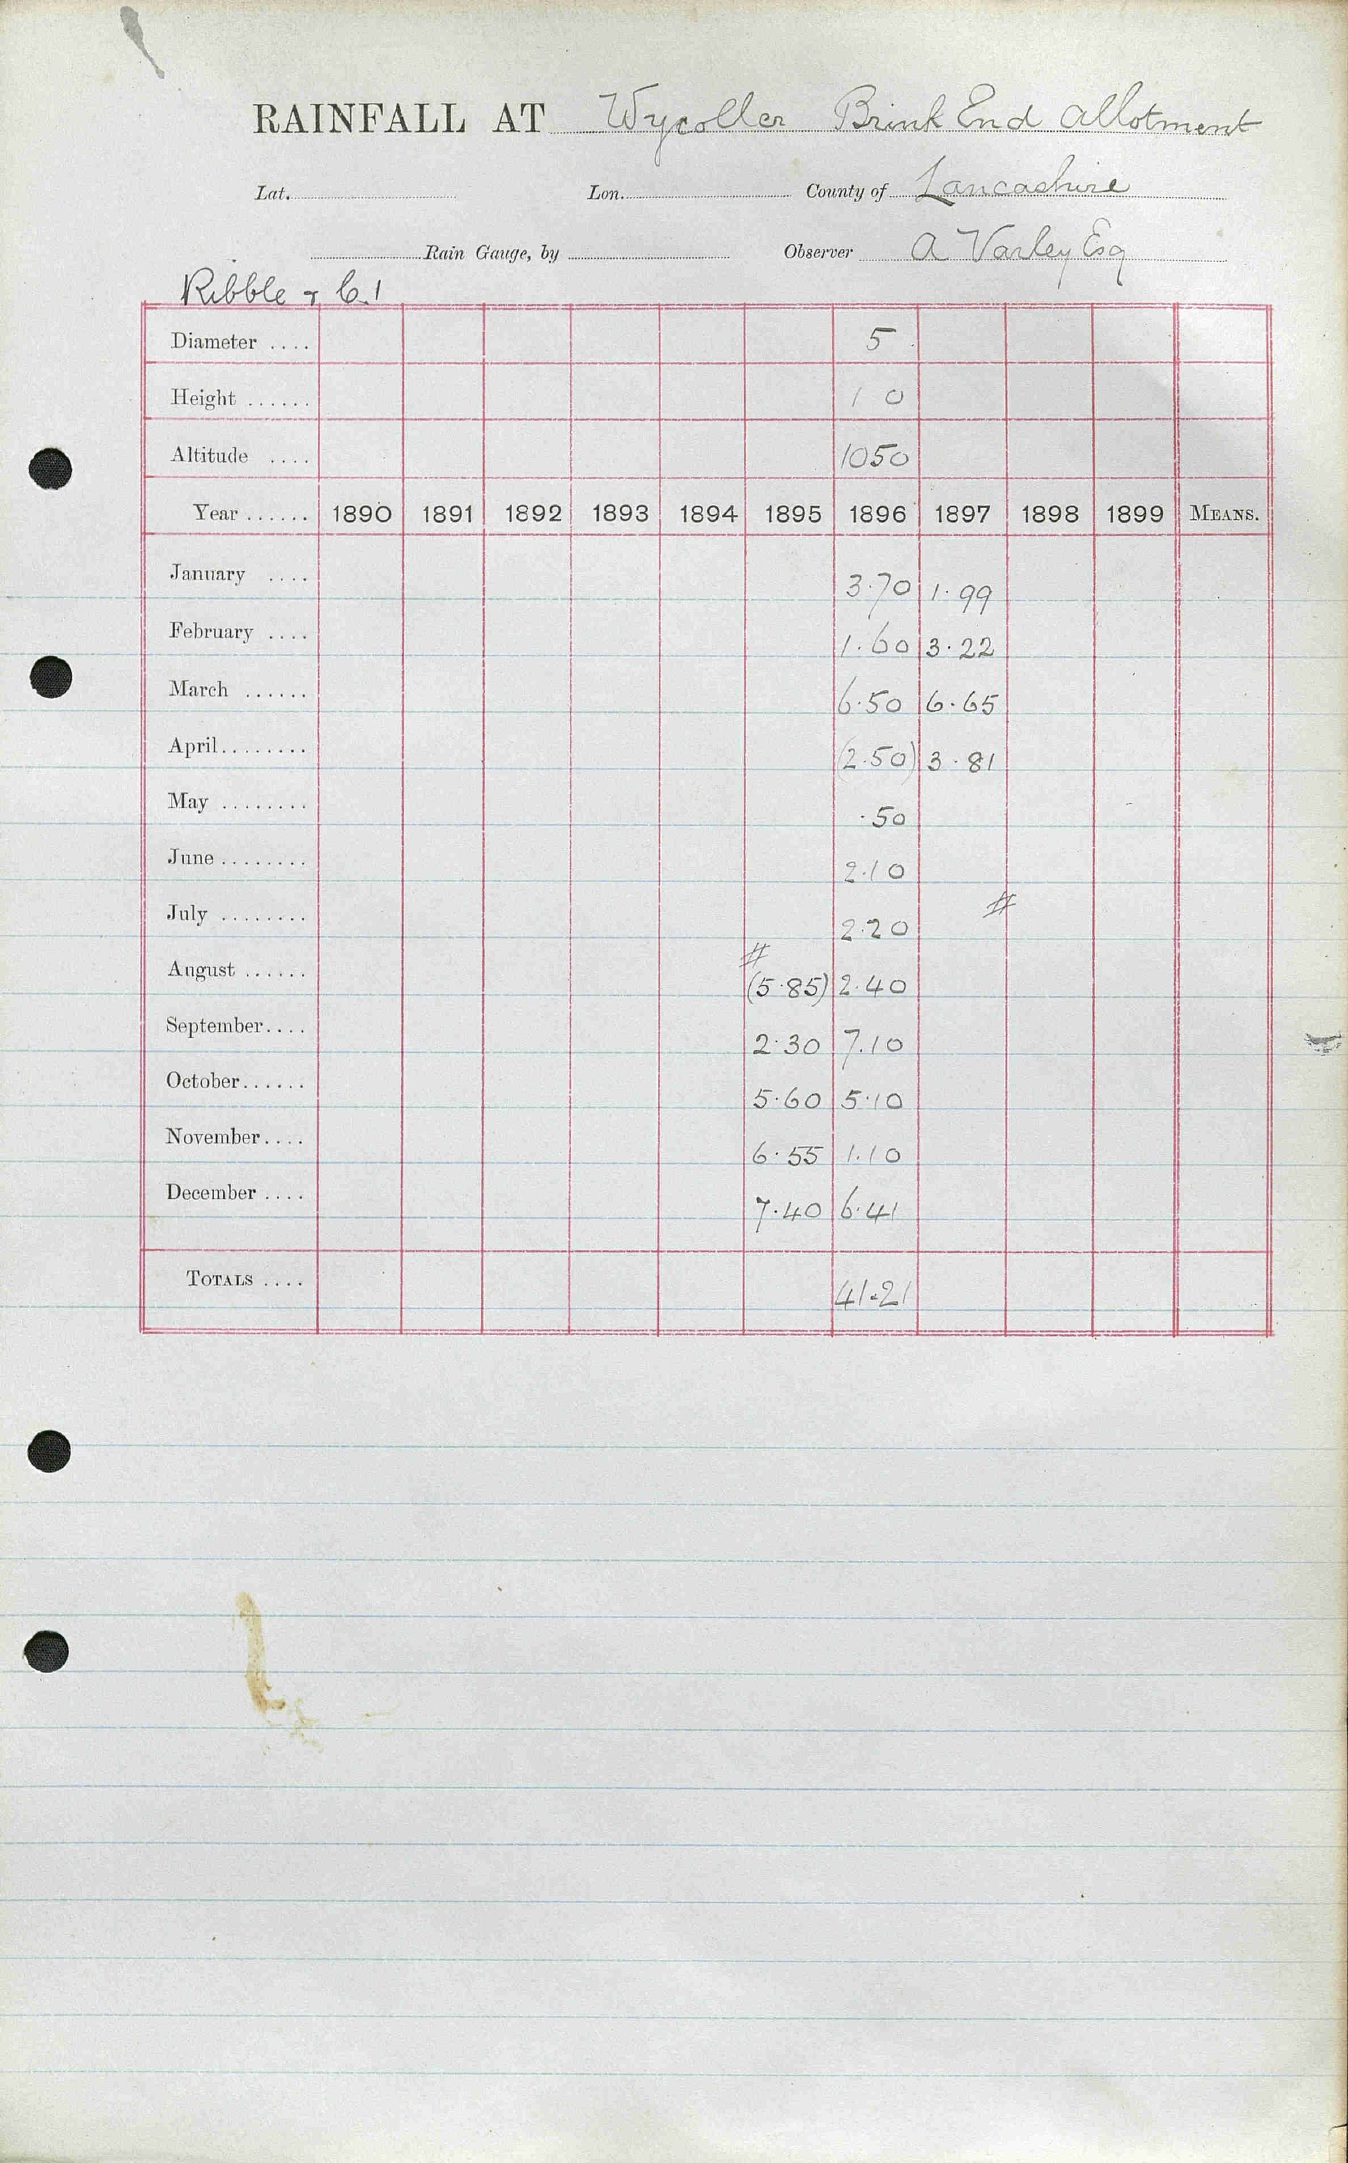 RAINFALL AT Wycoller Brink End Allotment
Lat. Lon. County of Lancashire
Rain Gauge, by Observer A Varley Esq
Ribble + C.1
Diameter .... 5
Height ...... 1 0
Altitude .... 1050
Year ...... 1890 1891 1892 1893 1894 1895 1896 1897 1898 1899 MEANS.
January .... 3.70 1.99
February .... 1.60 3.22
March ...... 6.50 6.65
April........ (2.50) 3.81
May ........ .50
June ........ 2.10
July ........ 2.20 #
August ...... # (5.85) 2.40
September.... 2.30 7.10
October...... 5.60 5.10
November.... 6.55 1.10
December .... 7.40 6.41
TOTALS .... 41.21